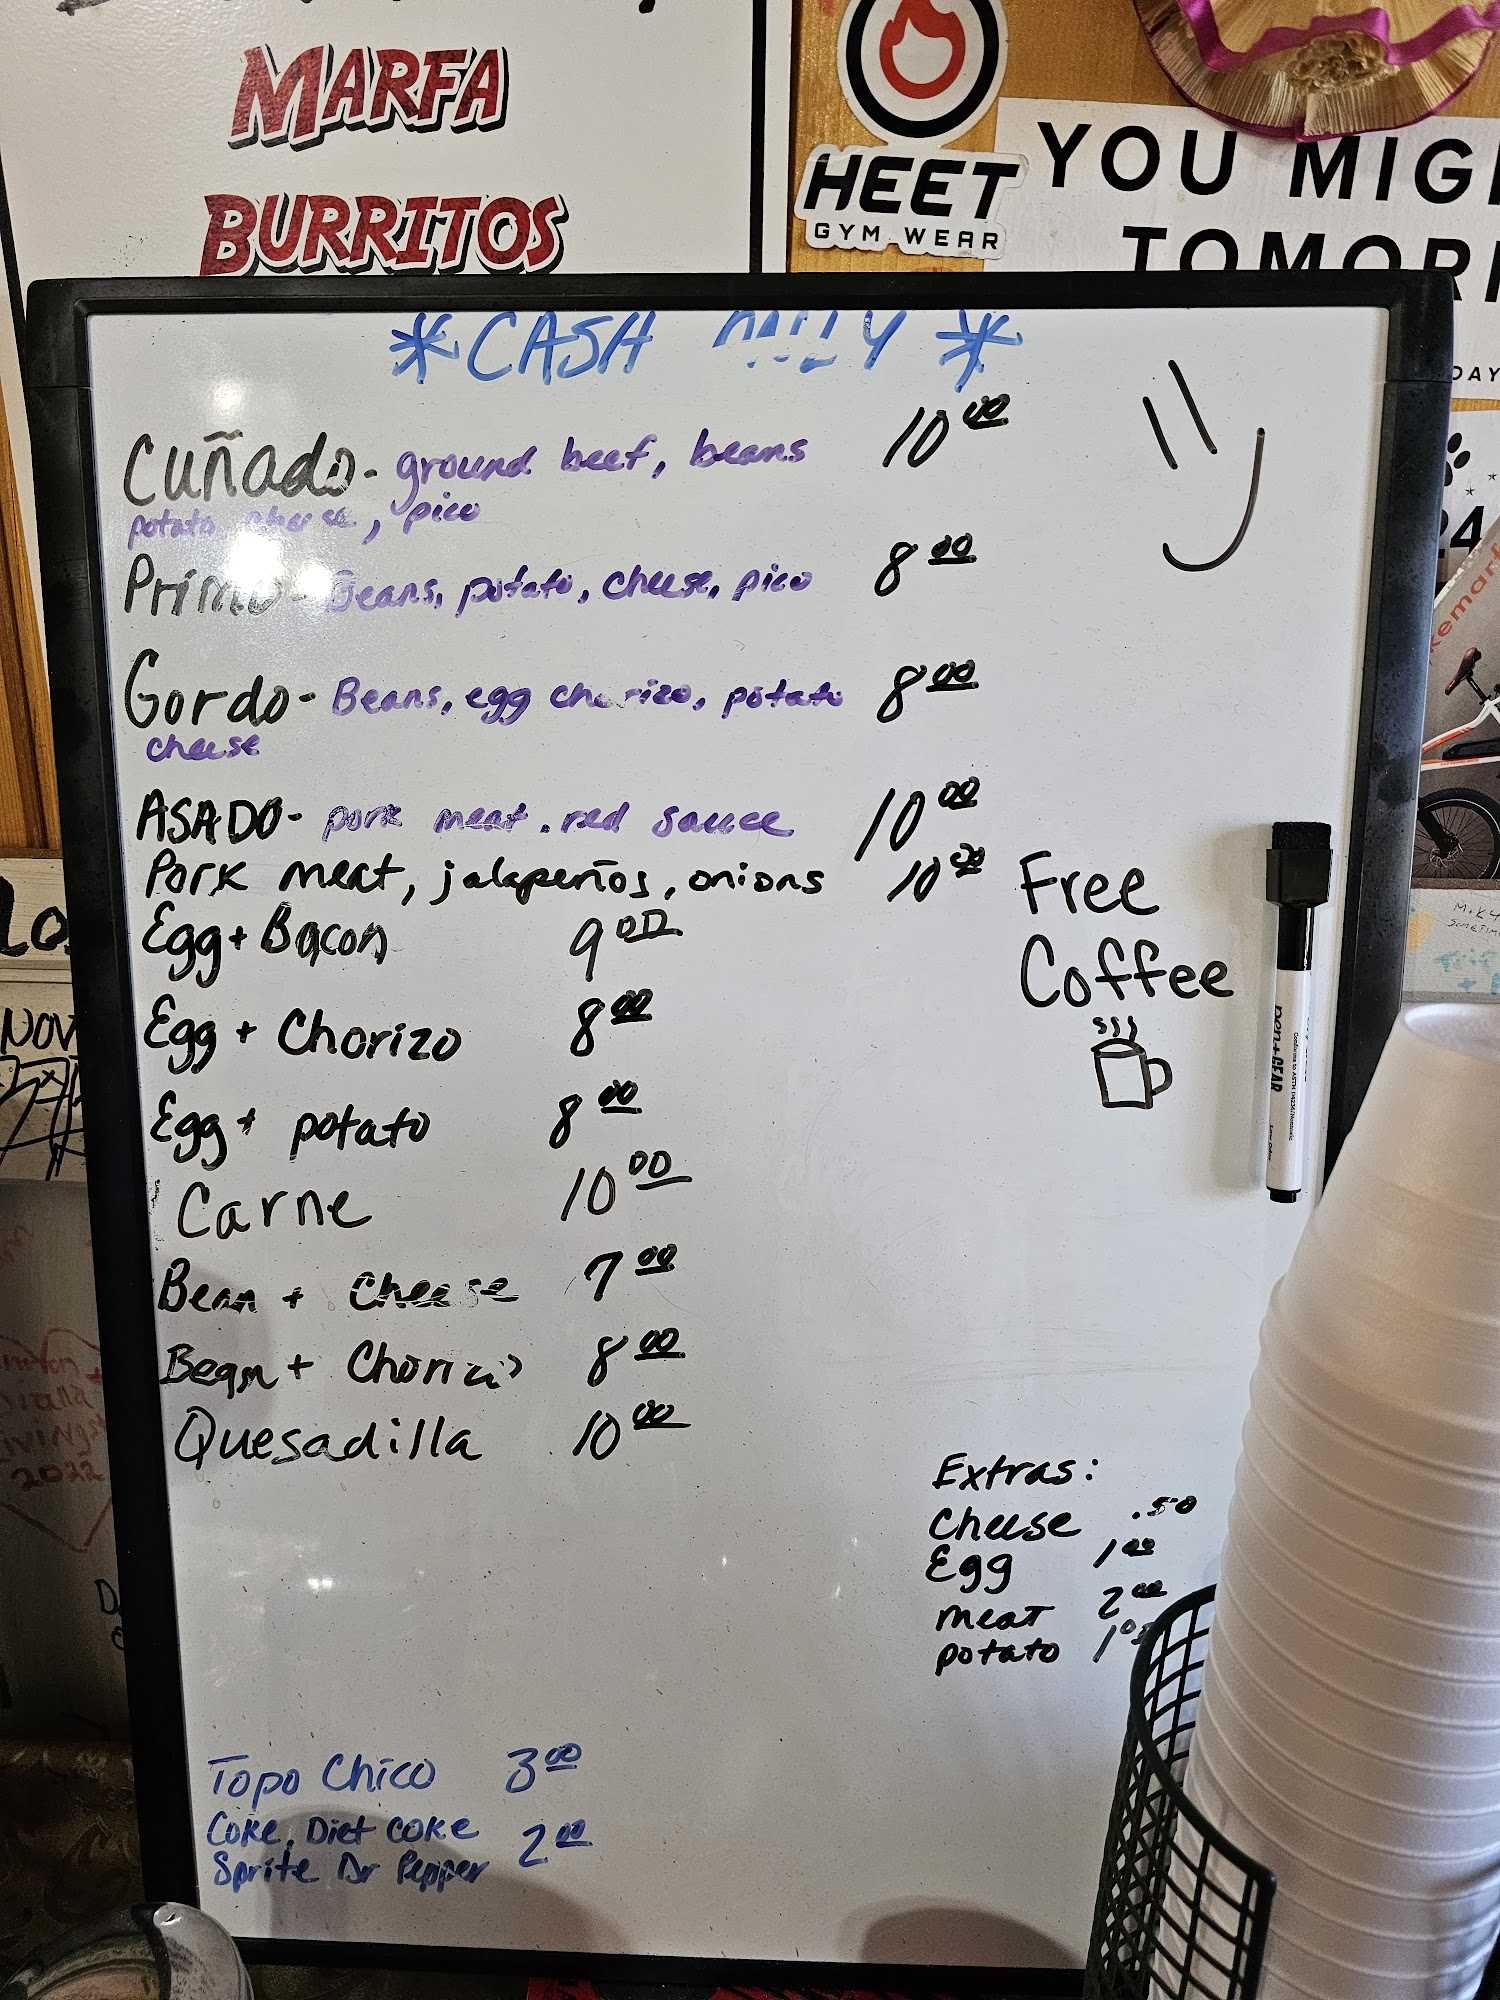 MARFA
BURRITOS
HEET
GYM WEAR
YOU MIG
TOMOR
DAY
24
*CASH ONLY*
Cuñado- ground beef, beans 10.00
potato, cheese, pico
Primo- Beans, potato, cheese, pico 8.00
Gordo- Beans, egg chorizo, potato 8.00
cheese
ASADO- pork meat, red sauce 10.00
Pork meat, jalapeños, onions 10.00
Egg + Bacon 9.00
Egg + Chorizo 8.00
Egg + potato 8.00
Carne 10.00
Bean + Cheese 7.00
Bean + Chorizo 8.00
Quesadilla 10.00
Free
Coffee
Extras:
Cheese .50
Egg 1.00
meat 2.00
potato 1.00
Topo Chico 3.00
Coke, Diet coke 2.00
Sprite Dr Pepper
NOV
2022